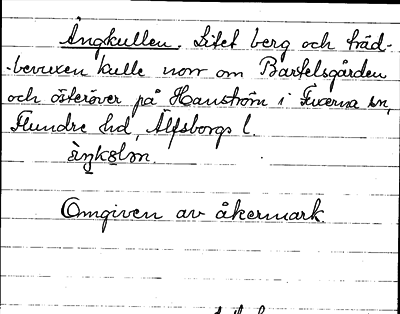 Ängkullen. Litet berg och träd-
-bevuxen kulle norr om Bartelsgården
och österöver på Hanström i Fuxerna sn,
Flundre hd, Älfsborgs l.
Omgiven av åkermark